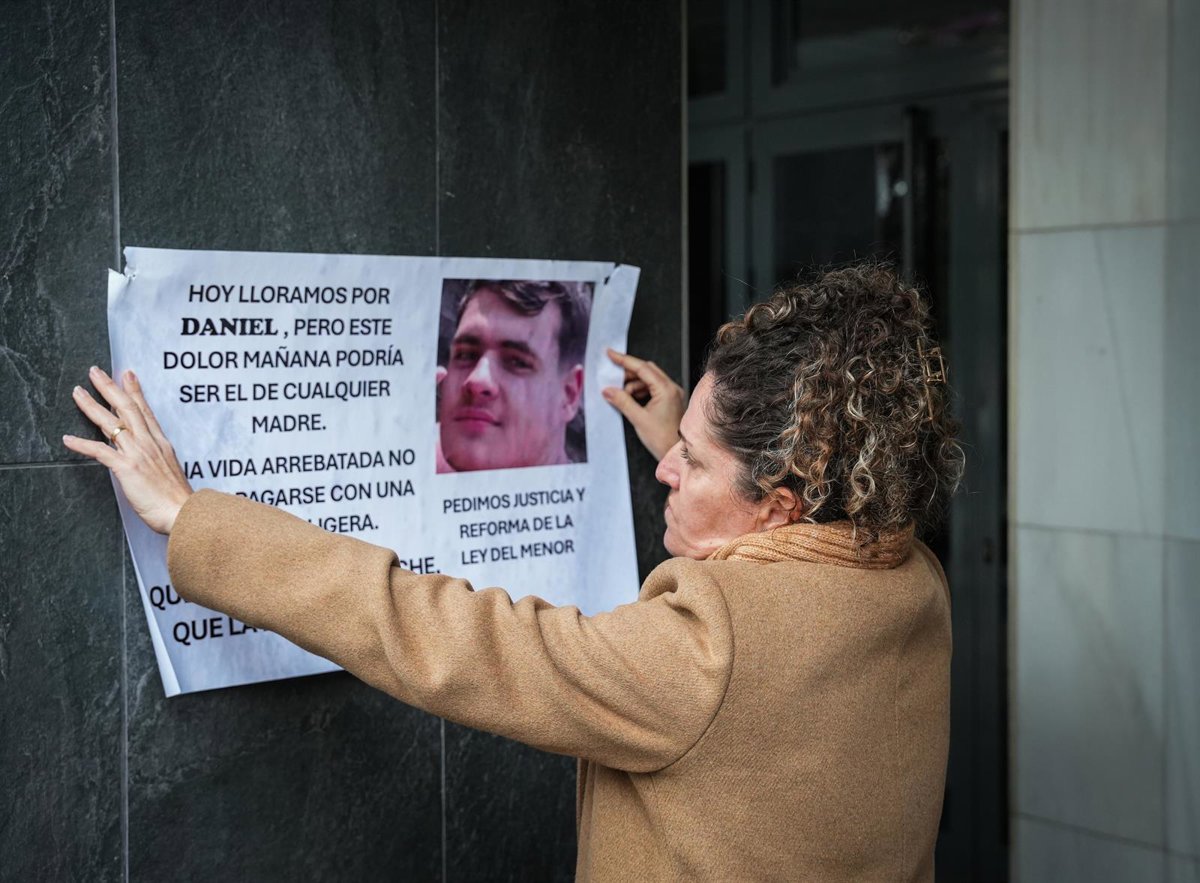 HOY LLORAMOS POR
DANIEL , PERO ESTE
DOLOR MAÑANA PODRÍA
SER EL DE CUALQUIER
MADRE.
VIDA ARREBATADA NO
PAGARSE CON UNA
LIGERA.
QUE
PEDIMOS JUSTICIA Y
REFORMA DE LA
LEY DEL MENOR